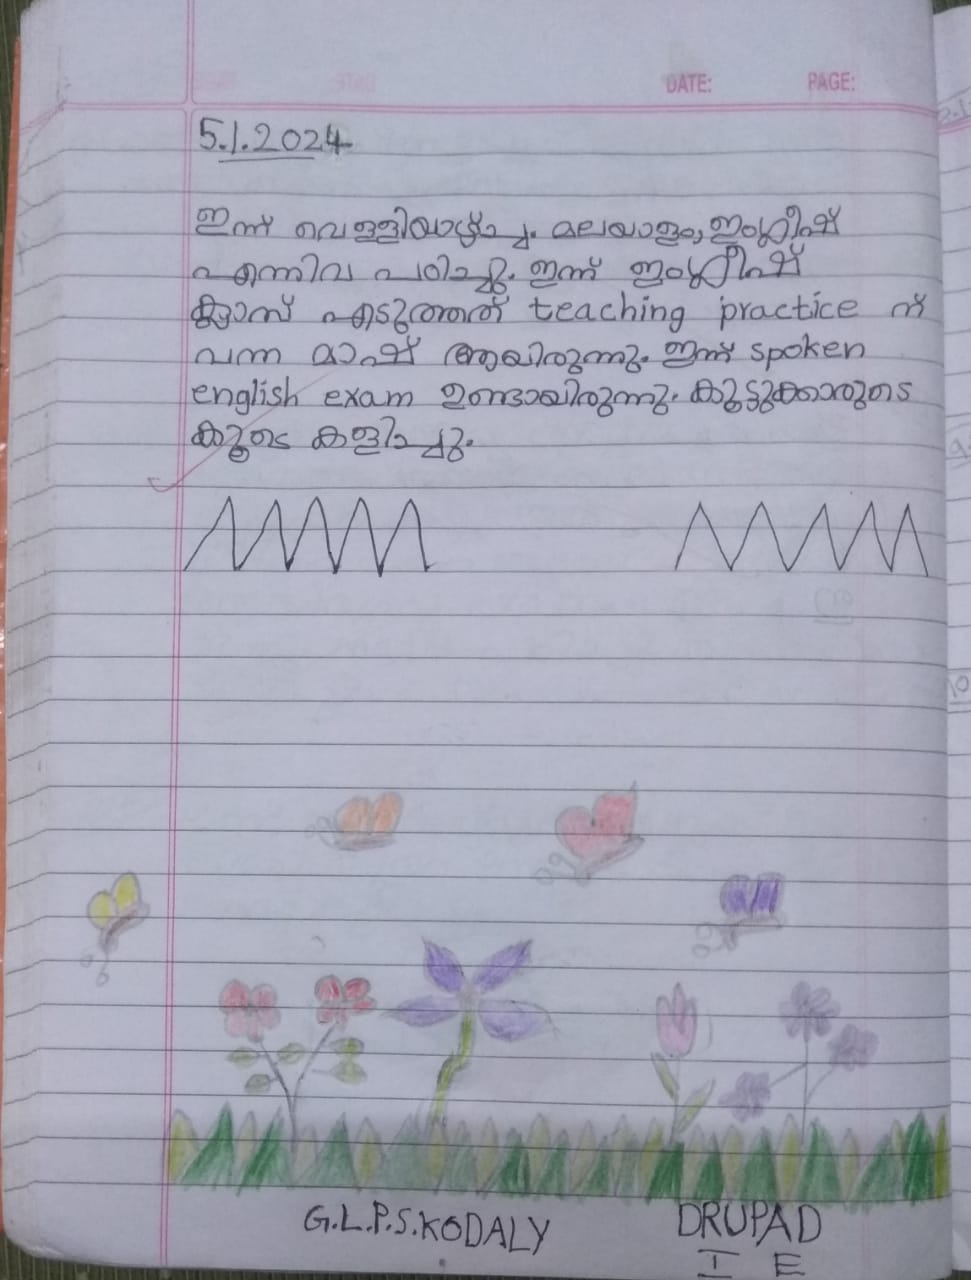 DATE: PAGE:
5.1.2024
ഇന്ന് വെള്ളിയാഴ്ച. മലയാളം, ഇംഗ്ലീഷ്
എന്നിവ പഠിച്ചു. ഇന്ന് ഇംഗ്ലീഷ്
ക്ലാസ് എടുത്തത് teaching practice ന്
വന്ന മാഷ് ആയിരുന്നു. ഇന്ന് spoken
english exam ഉണ്ടായിരുന്നു. കൂട്ടുക്കാരുടെ
കൂടെ കളിച്ചു.
G.L.P.S.KODALY DRUPAD
I E